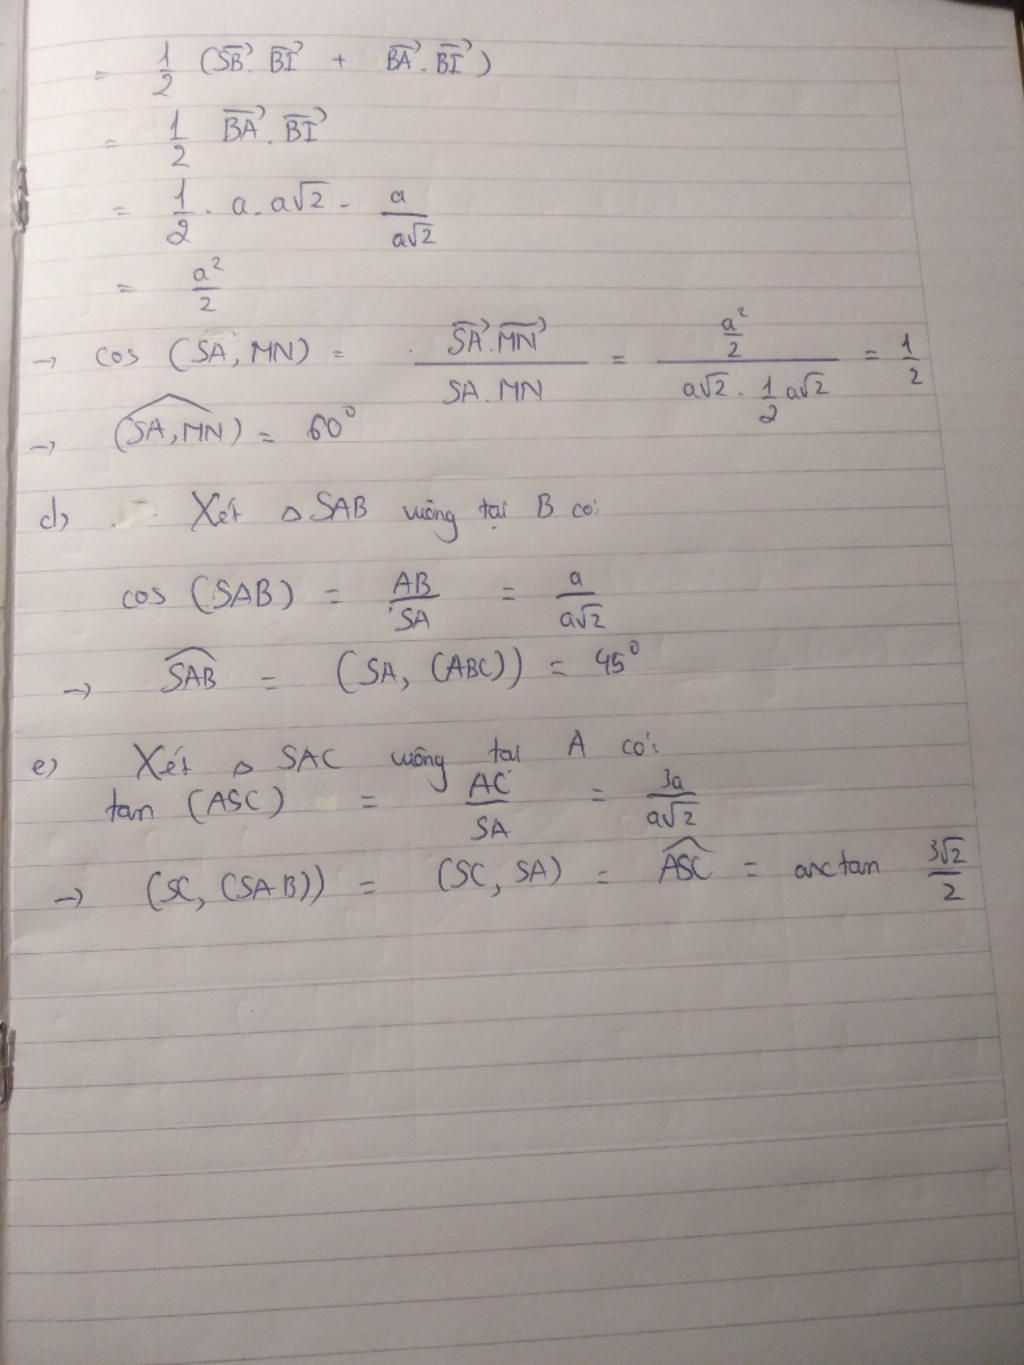 = 1/2 (SB⃗. BI⃗ + BA⃗. BI⃗)
= 1/2 BA⃗. BI⃗
= 1/2 . a. a√2 . a/(a√2)
= a²/2
→ cos (SA, MN) = SA⃗. MN⃗/(SA. MN) = (a²/2)/(a√2 . 1/2 a√2) = 1/2
→ (SA, MN) = 60°
d) Xét △ SAB vuông tại B có:
cos (SAB) = AB/SA = a/(a√2)
→ SAB = (SA, (ABC)) = 45°
e) Xét △ SAC vuông tại A có:
tan (ASC) = AC/SA = 3a/(a√2)
→ (SC, (SAB)) = (SC, SA) = ASC = arctan 3√2/2